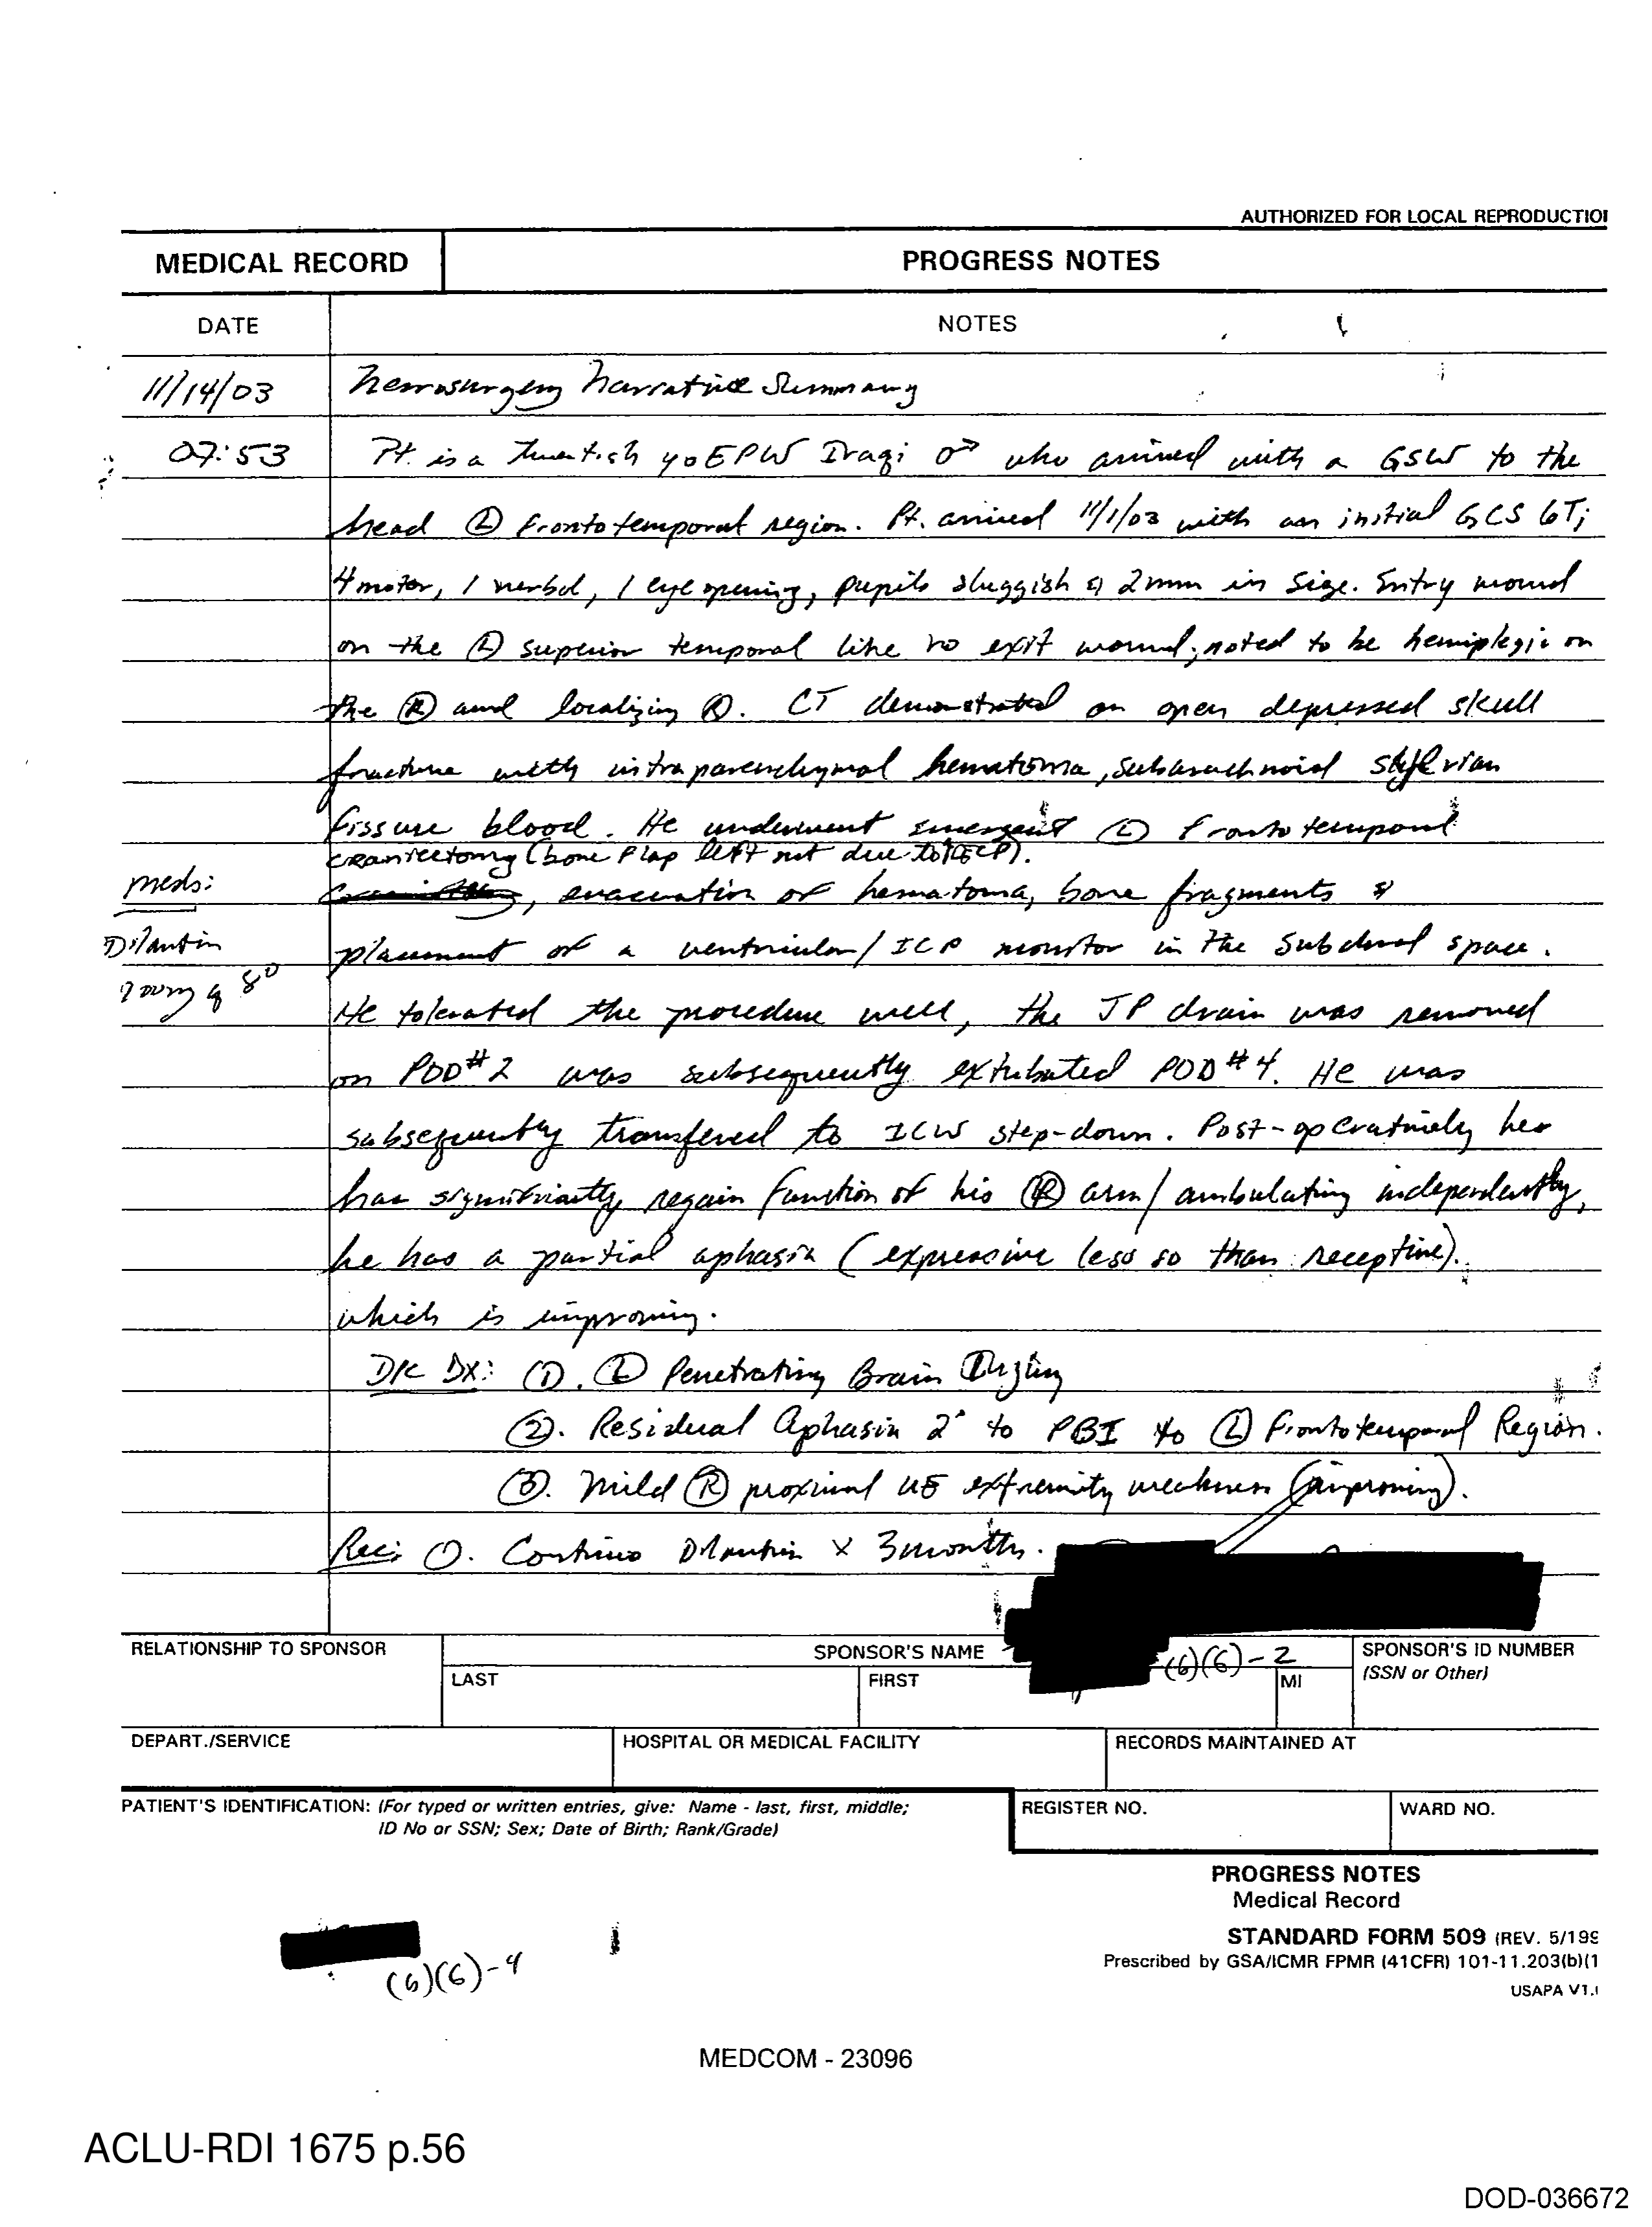 AUTHORIZED FOR LOCAL REPRODUCTIO
MEDICAL RECORD PROGRESS NOTES
DATE NOTES
11/14/03 Neurosurgery Narrative Summary
07:53 Pt. is a Twentish yo EPW Iraqi ♂ who arrived with a GSW to the
head Ⓛ Frontotemporal region. Pt. arrived 11/1/03 with an initial GCS 6T;
4 motor, 1 verbal, 1 eye opening, pupils sluggish & 2mm in size. Entry wound
on the Ⓛ superior temporal line no exit wound; noted to be hemiplegic on
the Ⓡ and localizing. CT demonstrated an open depressed skull
fracture with intraparenchymal hematoma, subarachnoid sylvian
fissure blood. He underwent emergent Ⓛ Frontotemporal
craniectomy (bone flap left out due to ICP).
meds: , evacuation of hematoma, bone fragments &
Dilantin placement of a ventricular/ICP monitor in the subdural space.
q 8° He tolerated the procedure well, the JP drain was removed
on POD#2 was subsequently extubated POD#4. He was
subsequently transfered to ICW step-down. Post-operatively he
has significantly regain function of his Ⓡ arm/ambulating independently,
he has a partial aphasia (expressive less so than receptive).
which is improving.
D/C Dx: ①. Ⓛ Penetrating Brain Injury
②. Residual Aphasia 2° to PBI to Ⓛ Frontotemporal Region.
③. Mild Ⓡ proximal UE extremity weakness (improving).
Rec: ①. Continue Dilantin x 3 months.
RELATIONSHIP TO SPONSOR SPONSOR'S NAME SPONSOR'S ID NUMBER
(6)(6)-2 (SSN or Other)
LAST FIRST MI
DEPART./SERVICE HOSPITAL OR MEDICAL FACILITY RECORDS MAINTAINED AT
PATIENT'S IDENTIFICATION: (For typed or written entries, give: Name - last, first, middle; REGISTER NO. WARD NO.
ID No or SSN; Sex; Date of Birth; Rank/Grade)
PROGRESS NOTES
Medical Record
STANDARD FORM 509 (REV. 5/199
Prescribed by GSA/ICMR FPMR (41CFR) 101-11.203(b)(1
USAPA V1.
(6)(6)-4
MEDCOM - 23096
ACLU-RDI 1675 p.56
DOD-036672